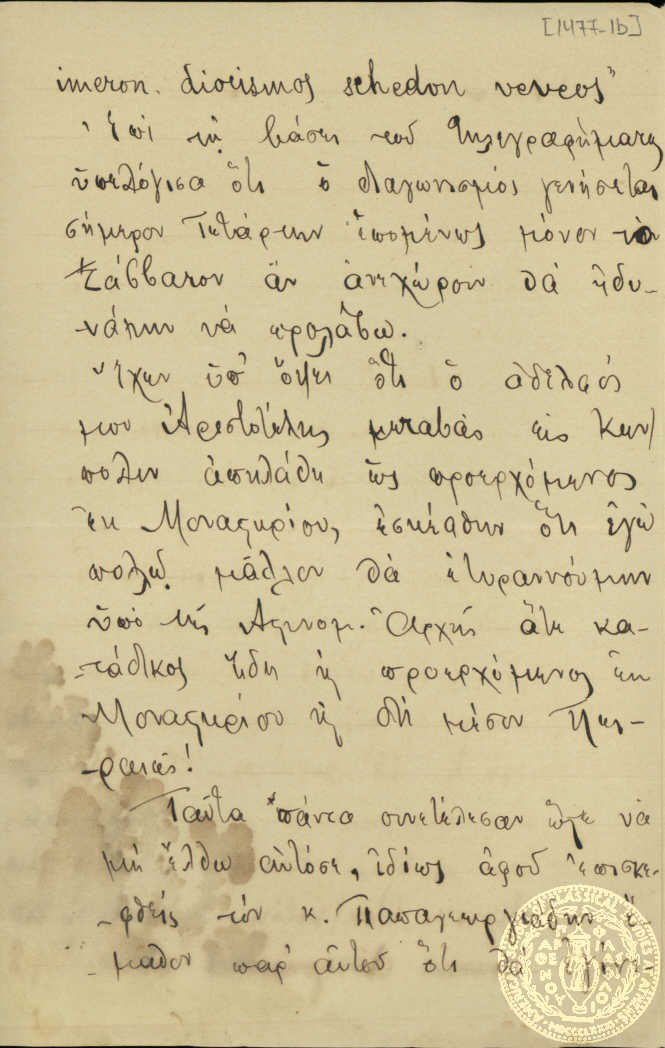 [1477-1b]
imeron. diorismos schedon veveos"
Ἐπὶ τῇ βάσει τοῦ τηλεγραφήματος
ὑπελόγισα ὅτι ὁ διαγωνισμὸς γενήσεται
σήμερον Τετάρτην ἑπομένως μόνον τὸ
Σάββατον ἂν ἀνεχώρουν θὰ ἠδυ-
νάμην νὰ προλάβω.
Ἔχων ὑπ' ὄψει ὅτι ὁ ἀδελφός
μου Ἀριστοτέλης μεταβὰς εἰς Κων/
πολιν ἀπηλάθη ὡς προερχόμενος
ἐκ Μοναστηρίου, ἐσκέφθην ὅτι ἐγὼ
πολλῷ μᾶλλον θὰ ἐτυραννούμην
ὑπὸ τῆς Ἀστυνομ. Ἀρχῆς ἅτε κα-
τάδικος ἤδη ἢ προερχόμενος ἐκ
Μοναστηρίου ἢ διὰ μέσου Πει-
ραιῶς!
Ταῦτα πάντα συνετέλεσαν ὥστε νὰ
μὴ ἔλθω αὐτόσε, ἰδίως ἀφοῦ ἐπισκε-
φθεὶς τὸν κ. Παπαγεωργιάδην ἔ-
μαθον παρ' αὐτοῦ ὅτι θὰ